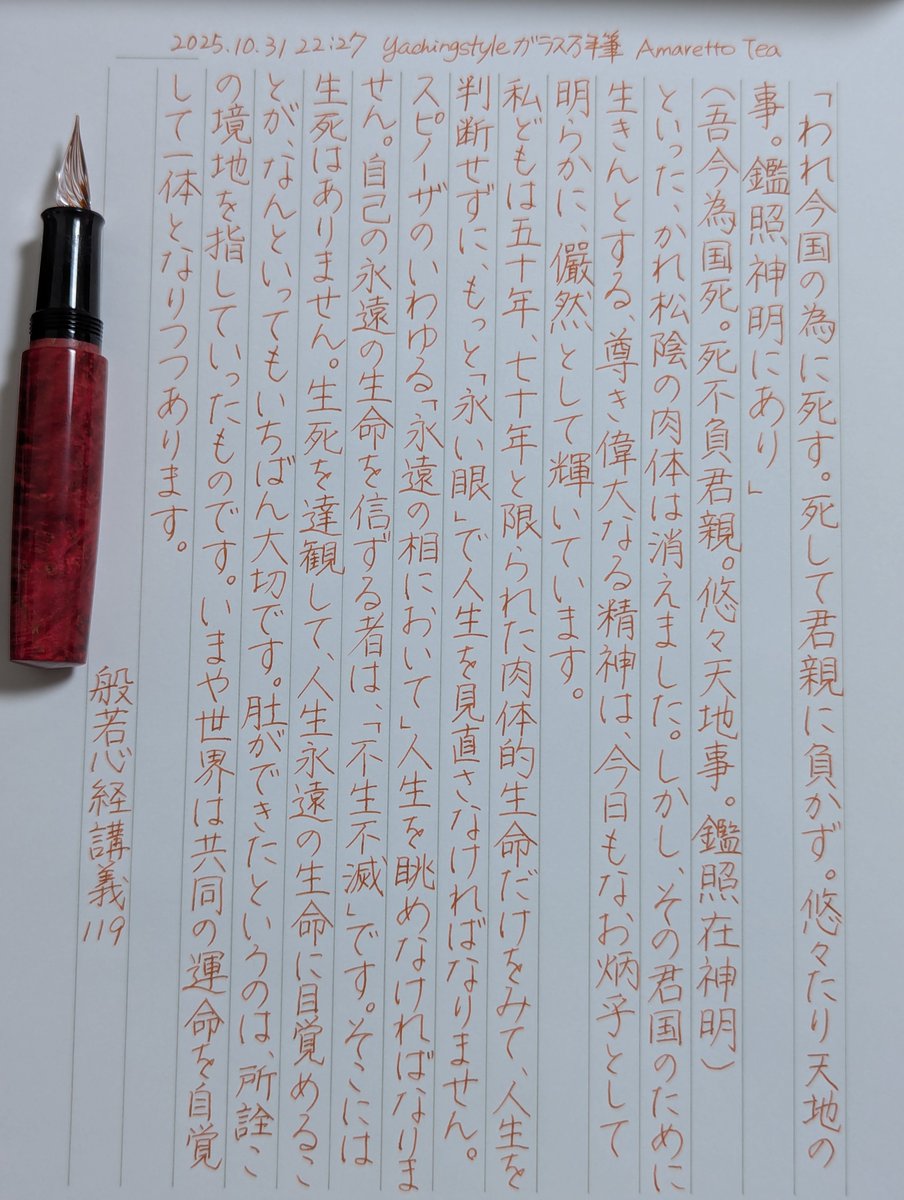 2025.10.31 22:27 Yachingstyle ガラス万年筆 Amaretto Tea
「われ今国の為に死す。死して君親に負かず。悠々たり天地の
事。鑑照神明にあり」
(吾今為国死。死不負君親。悠々天地事。鑑照在神明)
といった、かれ松陰の肉体は消えました。しかし、その君国のために
生きんとする、尊き偉大なる精神は、今日もなお炳乎として
明らかに、儼然として輝いています。
私どもは五十年、七十年と限られた肉体的生命だけをみて、人生を
判断せずに、もっと「永い眼」で人生を見直さなければなりません。
スピノーザのいわゆる「永遠の相において」人生を眺めなければなりま
せん。自己の永遠の生命を信ずる者は、「不生不滅」です。そこには
生死はありません。生死を達観して、人生永遠の生命に目覚めるこ
とが、なんといってもいちばん大切です。肚ができたというのは、所詮こ
の境地を指していったものです。いまや世界は共同の運命を自覚
して一体となりつつあります。
般若心経講義119